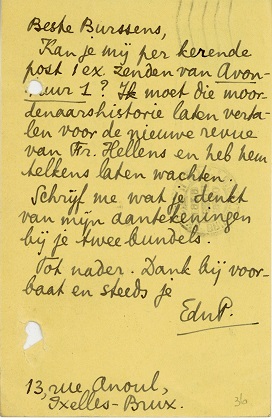 Beste Burssens,
Kan je mij per kerende
post 1 ex. zenden van Avon-
tuur 1? Ik moet die moor-
denaarshistorie laten verta-
len voor de nieuwe revue
van Fr. Hellens en heb hem
telkens laten wachten.
Schrijf me wat je denkt
van mijn aantekeningen
bij je twee bundels.
Tot nader. Dank bij voor-
baat en steeds je
EduP.
13, rue Anoul,
Ixelles-Brux.
36